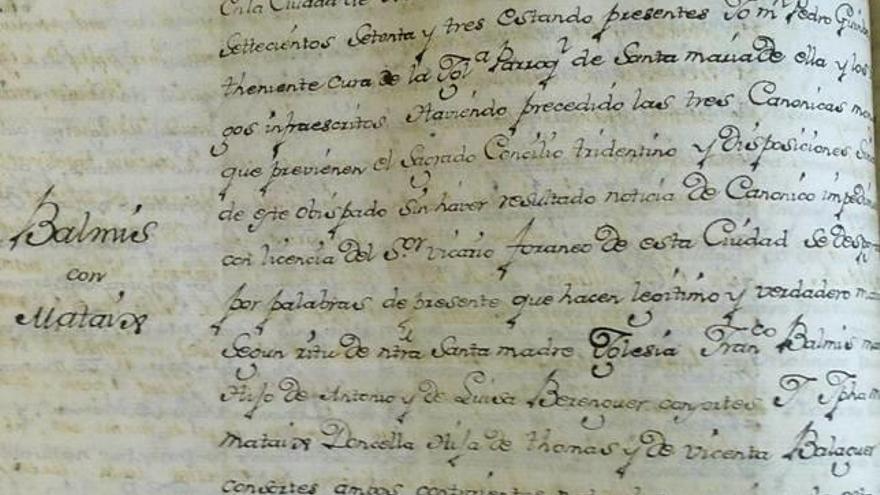 Balmis
con
Mataix
En la Ciudad de
Settecientos Setenta y tres estando presentes Pedro
theniente cura de la Ygl.ª Parroq.l de Santa maria de ella y los
gos infraescritos. Haviendo precedido las tres Canonicas mo
que previenen el Sagrado Concilio tridentino y Disposiciones
de este obispado Sin haver resultado noticia de Canonico impedim
con licencia del S.or vicario foraneo de esta Ciudad Se despo
por palabras de presente que hacen legitimo y verdadero ma
Segun ritu de ntra Santa madre Yglesia Fran.co Balmis ma
Hijo de Antonio y de Luisa Berenguer consortes Y Jpha
mataix Doncella Hija de thomas y de Vicenta Balaguer
Consortes ambos